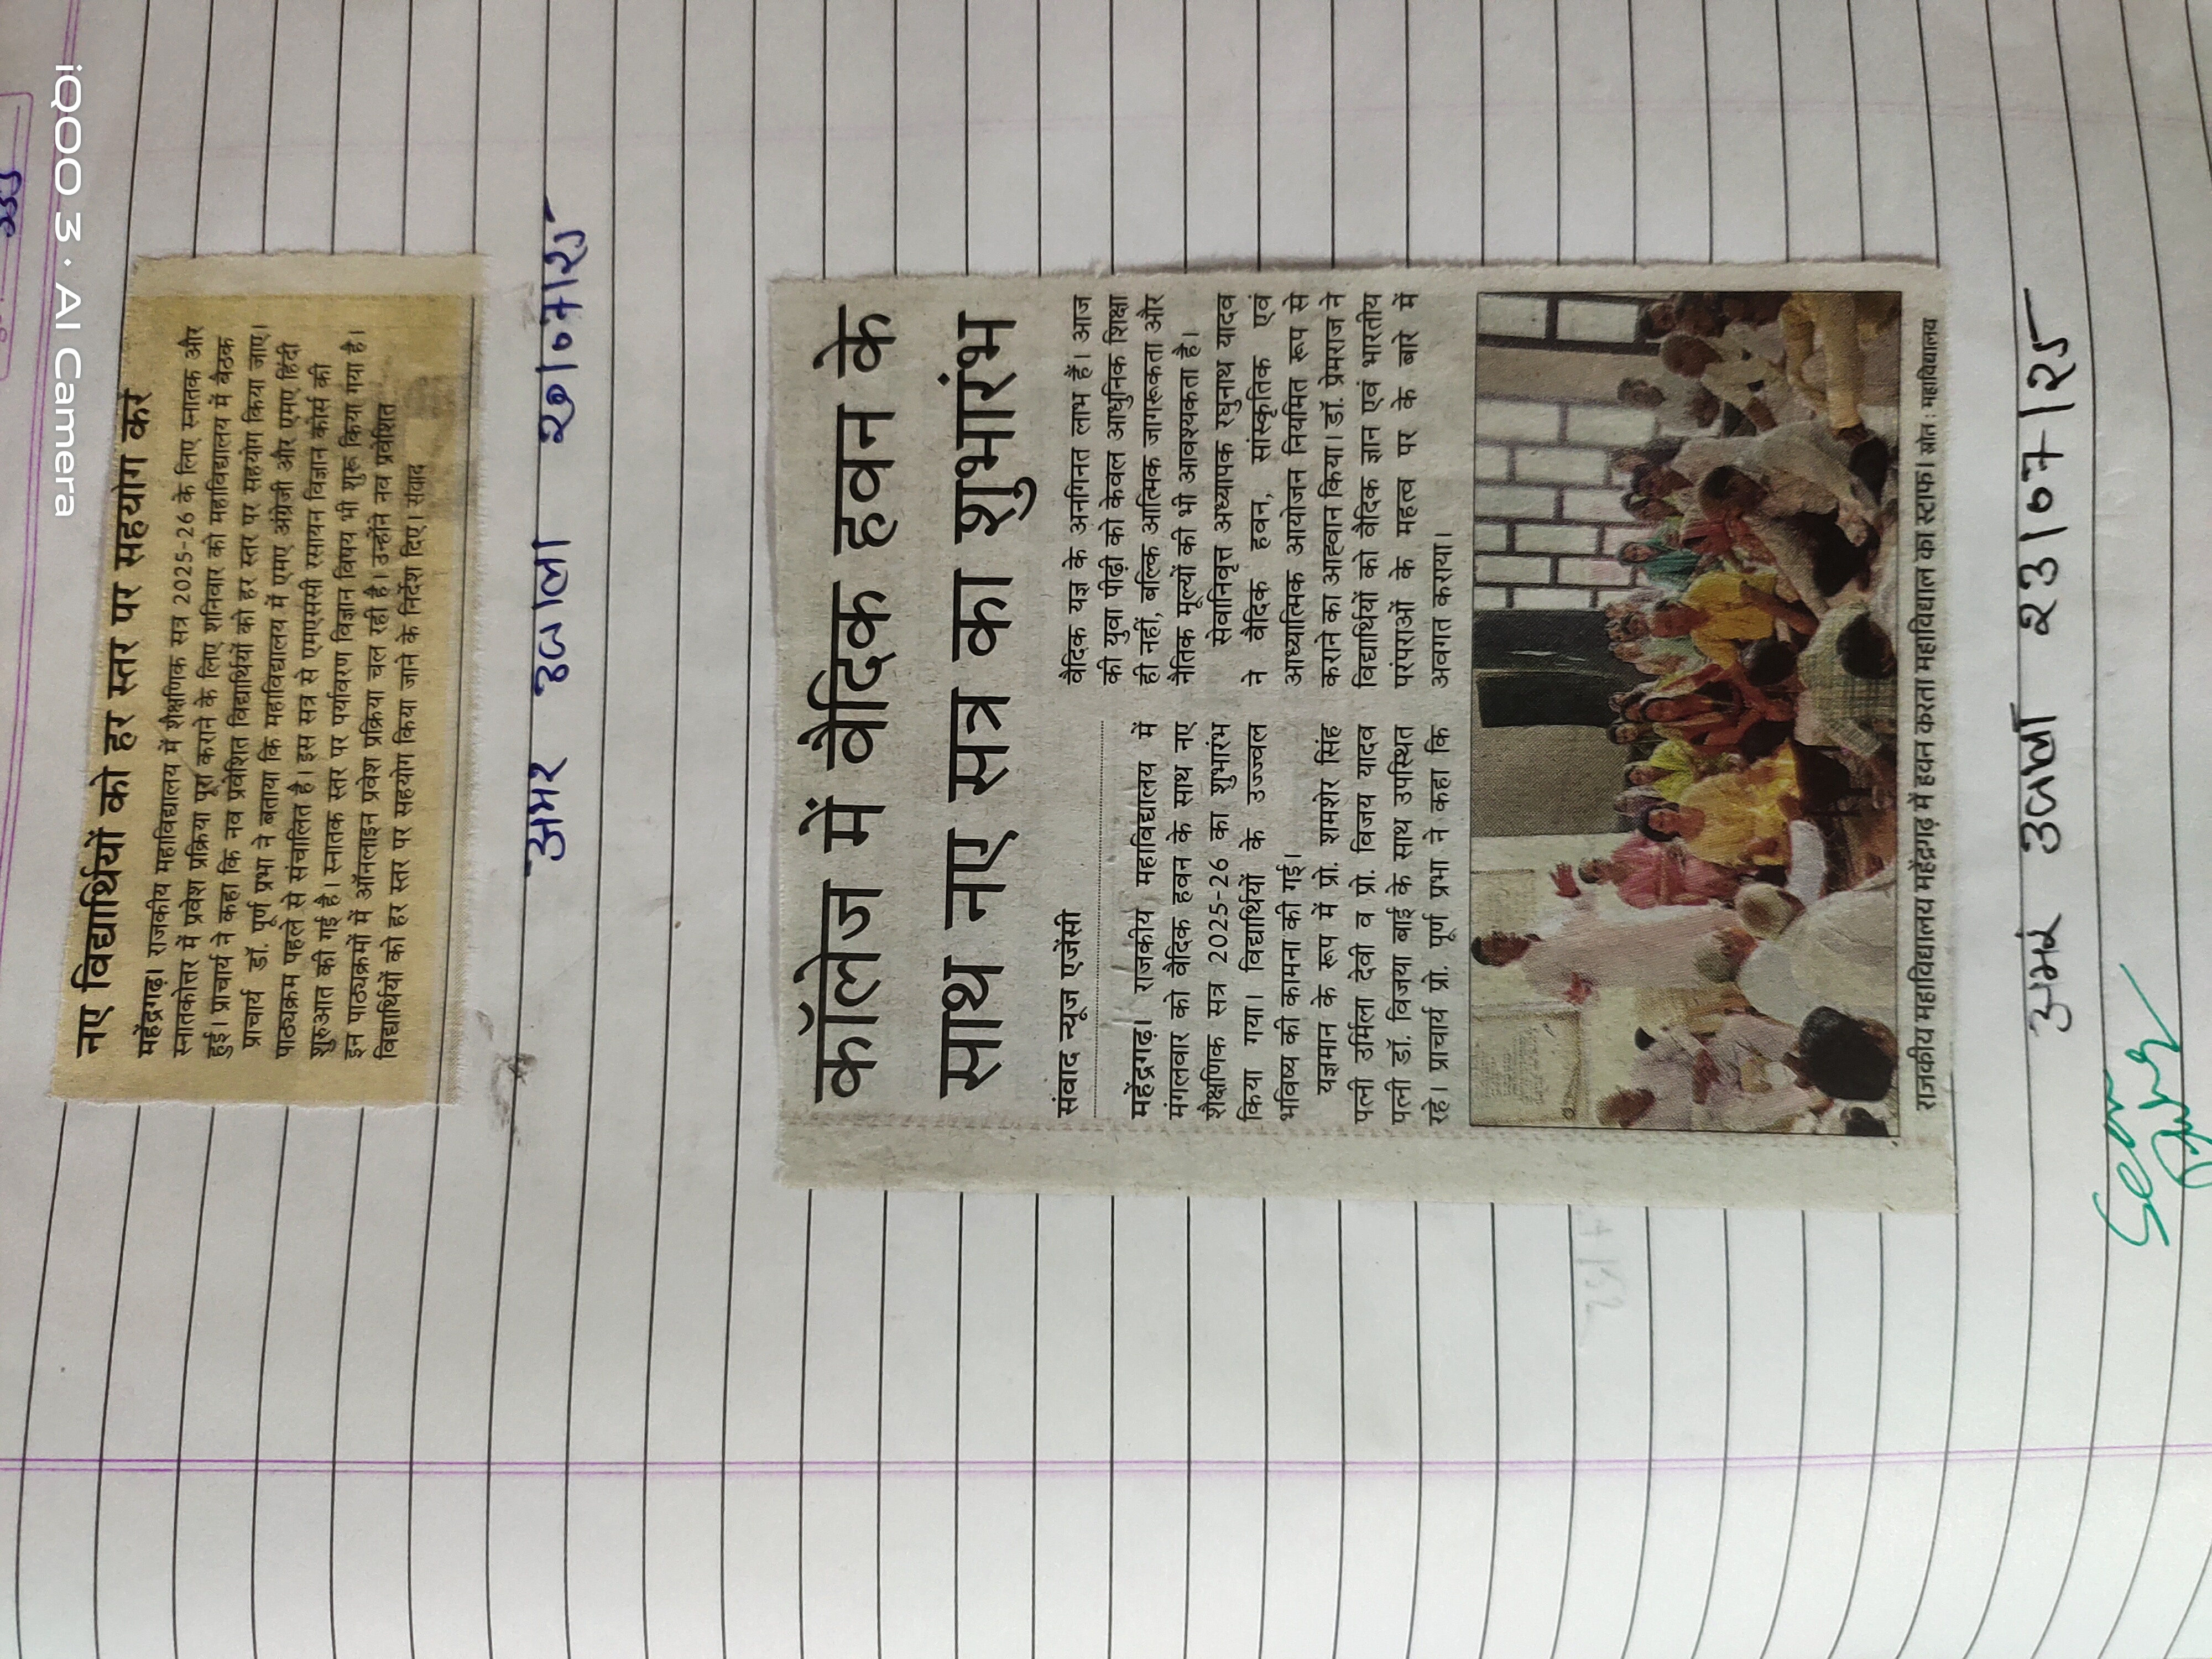 नए विद्यार्थियों को हर स्तर पर सहयोग करें
महेंद्रगढ़। राजकीय महाविद्यालय में शैक्षणिक सत्र 2025-26 के लिए स्नातक और
स्नातकोत्तर में प्रवेश प्रक्रिया पूरा कराने के लिए शनिवार को महाविद्यालय में बैठक
हुई। प्राचार्य ने कहा कि नव प्रवेशित विद्यार्थियों को हर स्तर पर सहयोग किया जाए।
प्राचार्य डॉ. पूर्ण प्रभा ने बताया कि महाविद्यालय में एमए अंग्रेजी और एमए हिंदी
पाठ्यक्रम पहले से संचालित है। इस सत्र से एमएससी रसायन विज्ञान कोर्स की
शुरुआत की गई है। स्नातक स्तर पर पर्यावरण विज्ञान विषय भी शुरू किया गया है।
इन पाठ्यक्रमों में ऑनलाइन प्रवेश प्रक्रिया चल रही है। उन्होंने नव प्रवेशित
विद्यार्थियों को हर स्तर पर सहयोग किया जाने के निर्देश दिए। संवाद
अमर उजाला २७।०७।२५
कॉलेज में वैदिक हवन के
साथ नए सत्र का शुभारंभ
संवाद न्यूज एजेंसी
महेंद्रगढ़। राजकीय महाविद्यालय में
मंगलवार को वैदिक हवन के साथ नए
शैक्षणिक सत्र 2025-26 का शुभारंभ
किया गया। विद्यार्थियों के उज्ज्वल
भविष्य की कामना की गई।
यज्ञमान के रूप में प्रो. शमशेर सिंह
पत्नी उर्मिला देवी व प्रो. विजय यादव
पत्नी डॉ. विजया बाई के साथ उपस्थित
रहे। प्राचार्य प्रो. पूर्ण प्रभा ने कहा कि
वैदिक यज्ञ के अनगिनत लाभ हैं। आज
की युवा पीढ़ी को केवल आधुनिक शिक्षा
ही नहीं, बल्कि आत्मिक जागरूकता और
नैतिक मूल्यों की भी आवश्यकता है।
सेवानिवृत्त अध्यापक रघुनाथ यादव
ने वैदिक हवन, सांस्कृतिक एवं
आध्यात्मिक आयोजन नियमित रूप से
कराने का आह्वान किया। डॉ. प्रेमराज ने
विद्यार्थियों को वैदिक ज्ञान एवं भारतीय
परंपराओं के महत्व पर के बारे में
अवगत कराया।
राजकीय महाविद्यालय महेंद्रगढ़ में हवन करता महाविद्याल का स्टाफ। स्रोत : महाविद्यालय
अमर उजाला २३।०७।२५
Seen
iQOO 3 · AI Camera